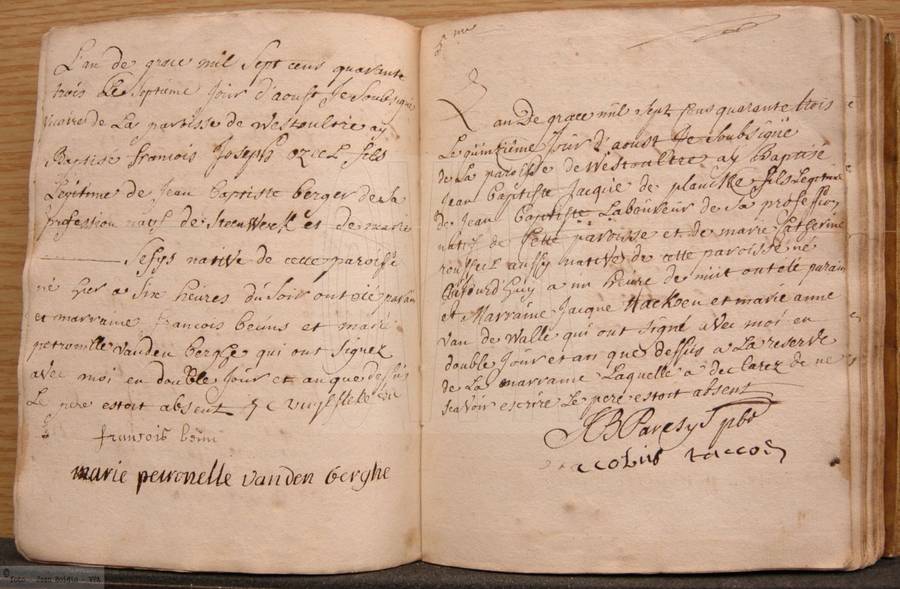 L'an de grace mil sept cens quarante
trois le septieme jour d'aoust Je soubsigné
vicaire de La paroisse de Westoultre ay
Baptisé francois Joseph oziel fils
Légitime de Jean baptiste berger de sa
profession natif de Steenwerck et de marie
Sesys native de cette paroisse
né hier a six heures du soir ont été parain
et marraine francois beuns et marie
petronille vanden berghe qui ont signez
avec moi en double jour et an que dessus
Le pere estoit absent
francois
marie petronelle vanden berghe
5 me
L'an De grace mil sept cens quarante trois
Le quinzième jour d'aoust Je soubsigné
de La paroisse de Westoultre ay Baptisé
Jean baptiste Jacque de plancke fils Legitime
de Jean baptiste Laboureur de Sa profession
natif de cette paroisse et de marie Catherine
roussel aussy native de cette paroisse né
aujourd'huy a un heure de nuit ont été parain
et Marraine Jacque Hackoen et marie anne
van de Walle qui ont signé avec moi en
double Jour et an que dessus a La reserve
de La marraine Laquelle a declarez de ne
scavoir escrire Le pere estoit absent
JB Paresys pbr
acobus
© foto - Jean Boidin - VVA